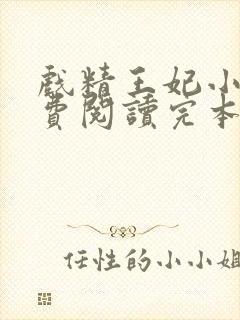 戲精王妃小
費閱讀完本
任性的小小姐